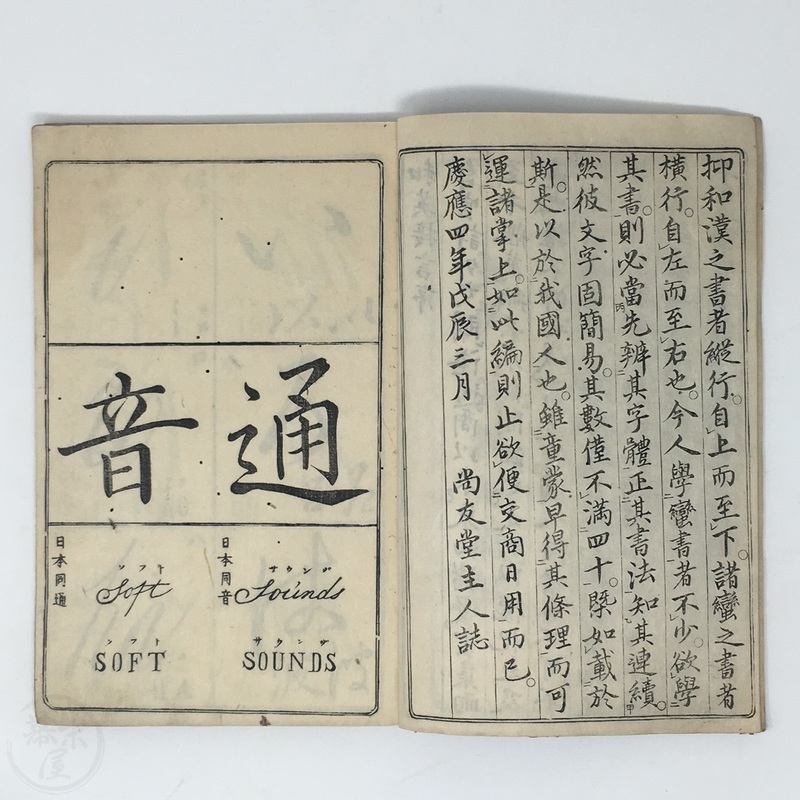 抑和漢之書者縱行。自上而至下。諸蠻之書者
橫行。自左而至右也。今人學蠻書者不少。欲學
其書。則必當先辨其字體正其書法知其連續。
然彼文字固簡易。其數僅不滿四十。槩如載於
斯。是以於我國人也。雖童蒙早得其條理而可
運諸掌上。如此編則止欲便交商日用而已。
慶應四年戊辰三月　尚友堂主人誌
通音
サウンヅ
Sounds
日本同音
サウンヅ
SOUNDS
ソフト
Soft
日本同通
ソフト
SOFT